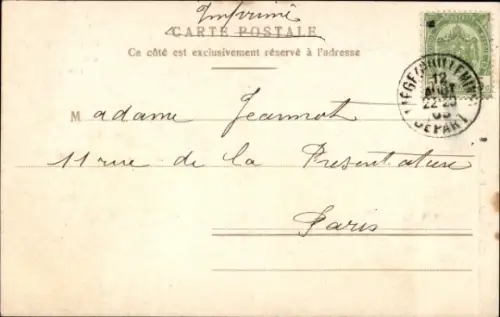 Imprimé
CARTE POSTALE
Ce côté est exclusivement réservé à l'adresse
LIEGE (GUILLEMINS)
12
AOUT
22-20
DEPART
Madame Jeannot
11 rue de la Présentation
Paris